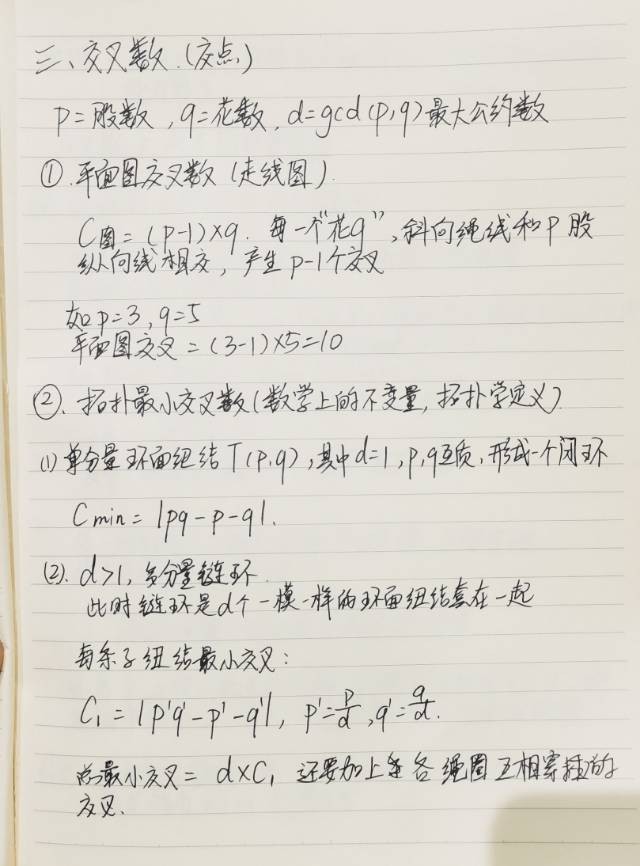 三、交叉数.(交点)
p=股数,q=花数,d=gcd(p,q)最大公约数
①.平面图交叉数(走线图).
C图=(p-1)×q. 每一个"花q",斜向绳线和p股
纵向线相交,产生p-1个交叉
如p=3,q=5
平面图交叉=(3-1)×5=10
②.拓扑最小交叉数(数学上的不变量,拓扑学定义)
(1)单分量环面纽结T(p,q),其中d=1,p,q互质,形成一个闭环
Cmin=|pq-p-q|.
(2).d>1,多分量链环.
此时链环是d个一模一样的环面纽结套在一起
每条子纽结最小交叉:
C₁=|p'q'-p'-q'|, p'=p/d,q'=q/d.
总最小交叉=d×C₁ 还要加上各绳圈互相穿插的
交叉.